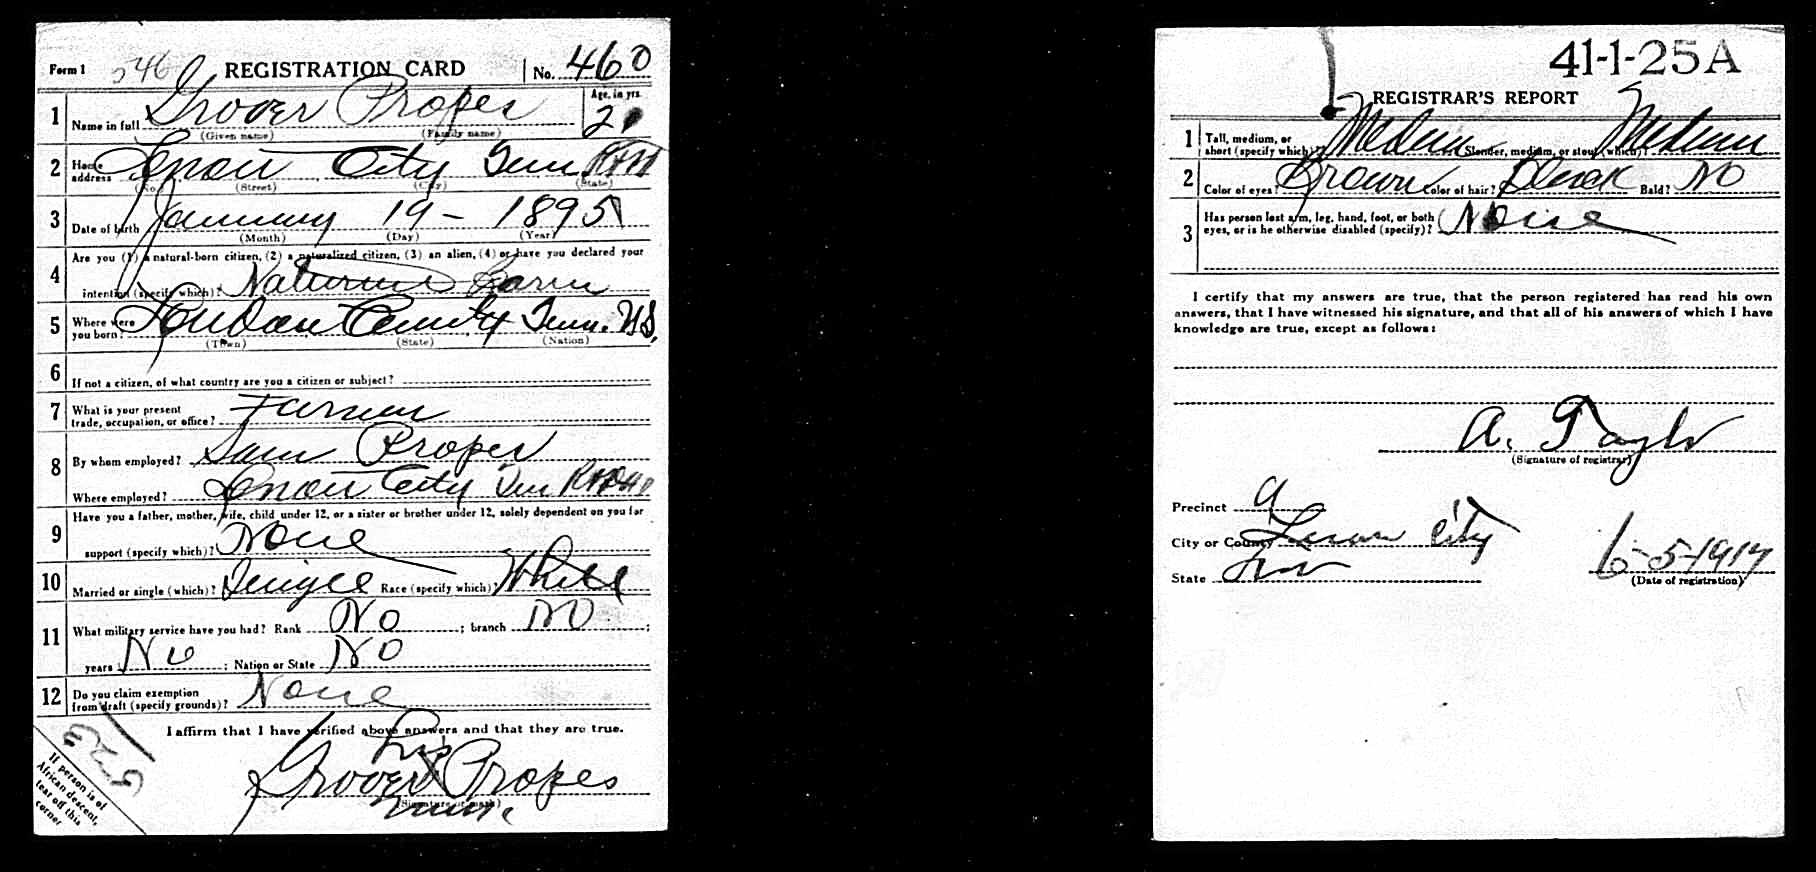 Form 1 546 REGISTRATION CARD No. 460
1 Name in full Grover Propes Age, in yrs.
(Given name) (Family name) 21
2 Home address Lenoir City Tenn
(No.) (Street) (City) (State)
3 Date of birth January 19 - 1895
(Month) (Day) (Year)
4 Are you (1) a natural-born citizen, (2) a naturalized citizen, (3) an alien, (4) or have you declared your
intention (specify which)? Natural Born
5 Where were you born? Loudon County Tenn. US.
(Town) (State) (Nation)
6 If not a citizen, of what country are you a citizen or subject?
7 What is your present
trade, occupation, or office? Farmer
8 By whom employed? Sam Propes
Where employed? Lenoir City Tenn
9 Have you a father, mother, wife, child under 12, or a sister or brother under 12, solely dependent on you for
support (specify which)? None
10 Married or single (which)? Single Race (specify which)? White
11 What military service have you had? Rank No ; branch No ;
years No ; Nation or State No
12 Do you claim exemption
from draft (specify grounds)? None
I affirm that I have verified above answers and that they are true.
his
Grover X Propes
(Signature or mark)
mark
If person is of
African descent,
tear off this
corner
41-1-25A
REGISTRAR'S REPORT
1 Tall, medium, or
short (specify which)? Medium Slender, medium, or stout (which)? Medium
2 Color of eyes? Brown Color of hair? Black Bald? NO
3 Has person lost arm, leg, hand, foot, or both
eyes, or is he otherwise disabled (specify)? None
I certify that my answers are true, that the person registered has read his own
answers, that I have witnessed his signature, and that all of his answers of which I have
knowledge are true, except as follows:
A. Taylor
(Signature of registrar)
Precinct 9
City or County Lenoir City
State Tenn 6-5-1917
(Date of registration)